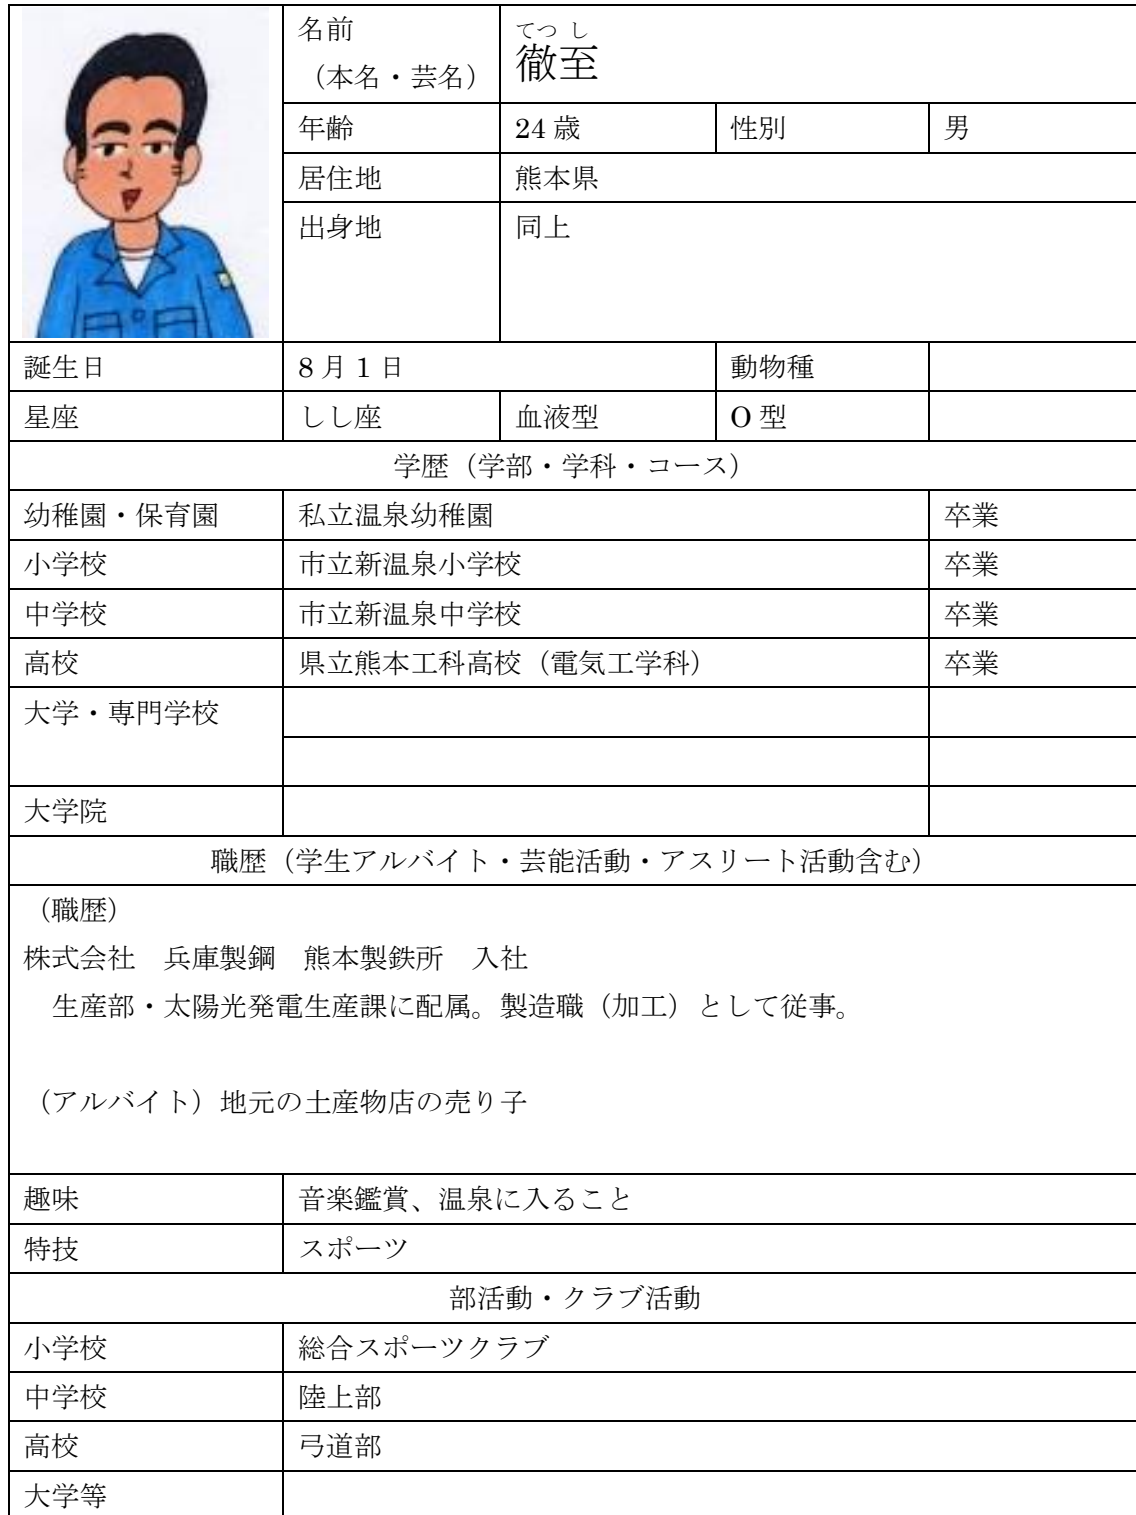 名前
（本名・芸名）
てつ し
徹至
年齢 24 歳 性別 男
居住地 熊本県
出身地 同上
誕生日 8 月 1 日 動物種
星座 しし座 血液型 O 型
学歴（学部・学科・コース）
幼稚園・保育園 私立温泉幼稚園 卒業
小学校 市立新温泉小学校 卒業
中学校 市立新温泉中学校 卒業
高校 県立熊本工科高校（電気工学科） 卒業
大学・専門学校
大学院
職歴（学生アルバイト・芸能活動・アスリート活動含む）
（職歴）
株式会社　兵庫製鋼　熊本製鉄所　入社
生産部・太陽光発電生産課に配属。製造職（加工）として従事。
（アルバイト）地元の土産物店の売り子
趣味 音楽鑑賞、温泉に入ること
特技 スポーツ
部活動・クラブ活動
小学校 総合スポーツクラブ
中学校 陸上部
高校 弓道部
大学等